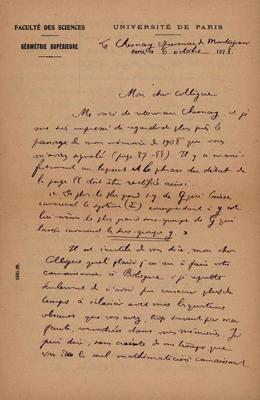 FACULTÉ DES SCIENCES
GÉOMÉTRIE SUPÉRIEURE
UNIVERSITÉ DE PARIS
Le Chesnay, 27 avenue de Montespan
Paris, le 6 octobre 1928.
Mon cher collègue
Me voici de retour au Chesnay, et je
me suis empressé de regarder de plus près le
passage de mon mémoire de 1908 que vous
m'avez signalé (pag. 87-88). Il y a mani-
festement un lapsus et la phrase du début de
la page 88 doit être rectifiée ainsi:
« Le plus grand s.g de G qui laisse
invariant le système (Σ) correspondant à γ est
lui-même le plus grand sous-groupe de G qui
laisse invariant le sous-groupe γ »
Il est inutile de vous dire, mon cher
Collègue quel plaisir j'ai eu à faire votre
connaissance à Bologne; je regrette
seulement de n'avoir pu consacrer plus de
temps à éclaircir avec vous les questions
obscures que vous avez, trop souvent par ma
faute, rencontrées dans mes mémoires. Je
puis dire, sans crainte de me tromper que
vous êtes le seul mathématicien connaissant